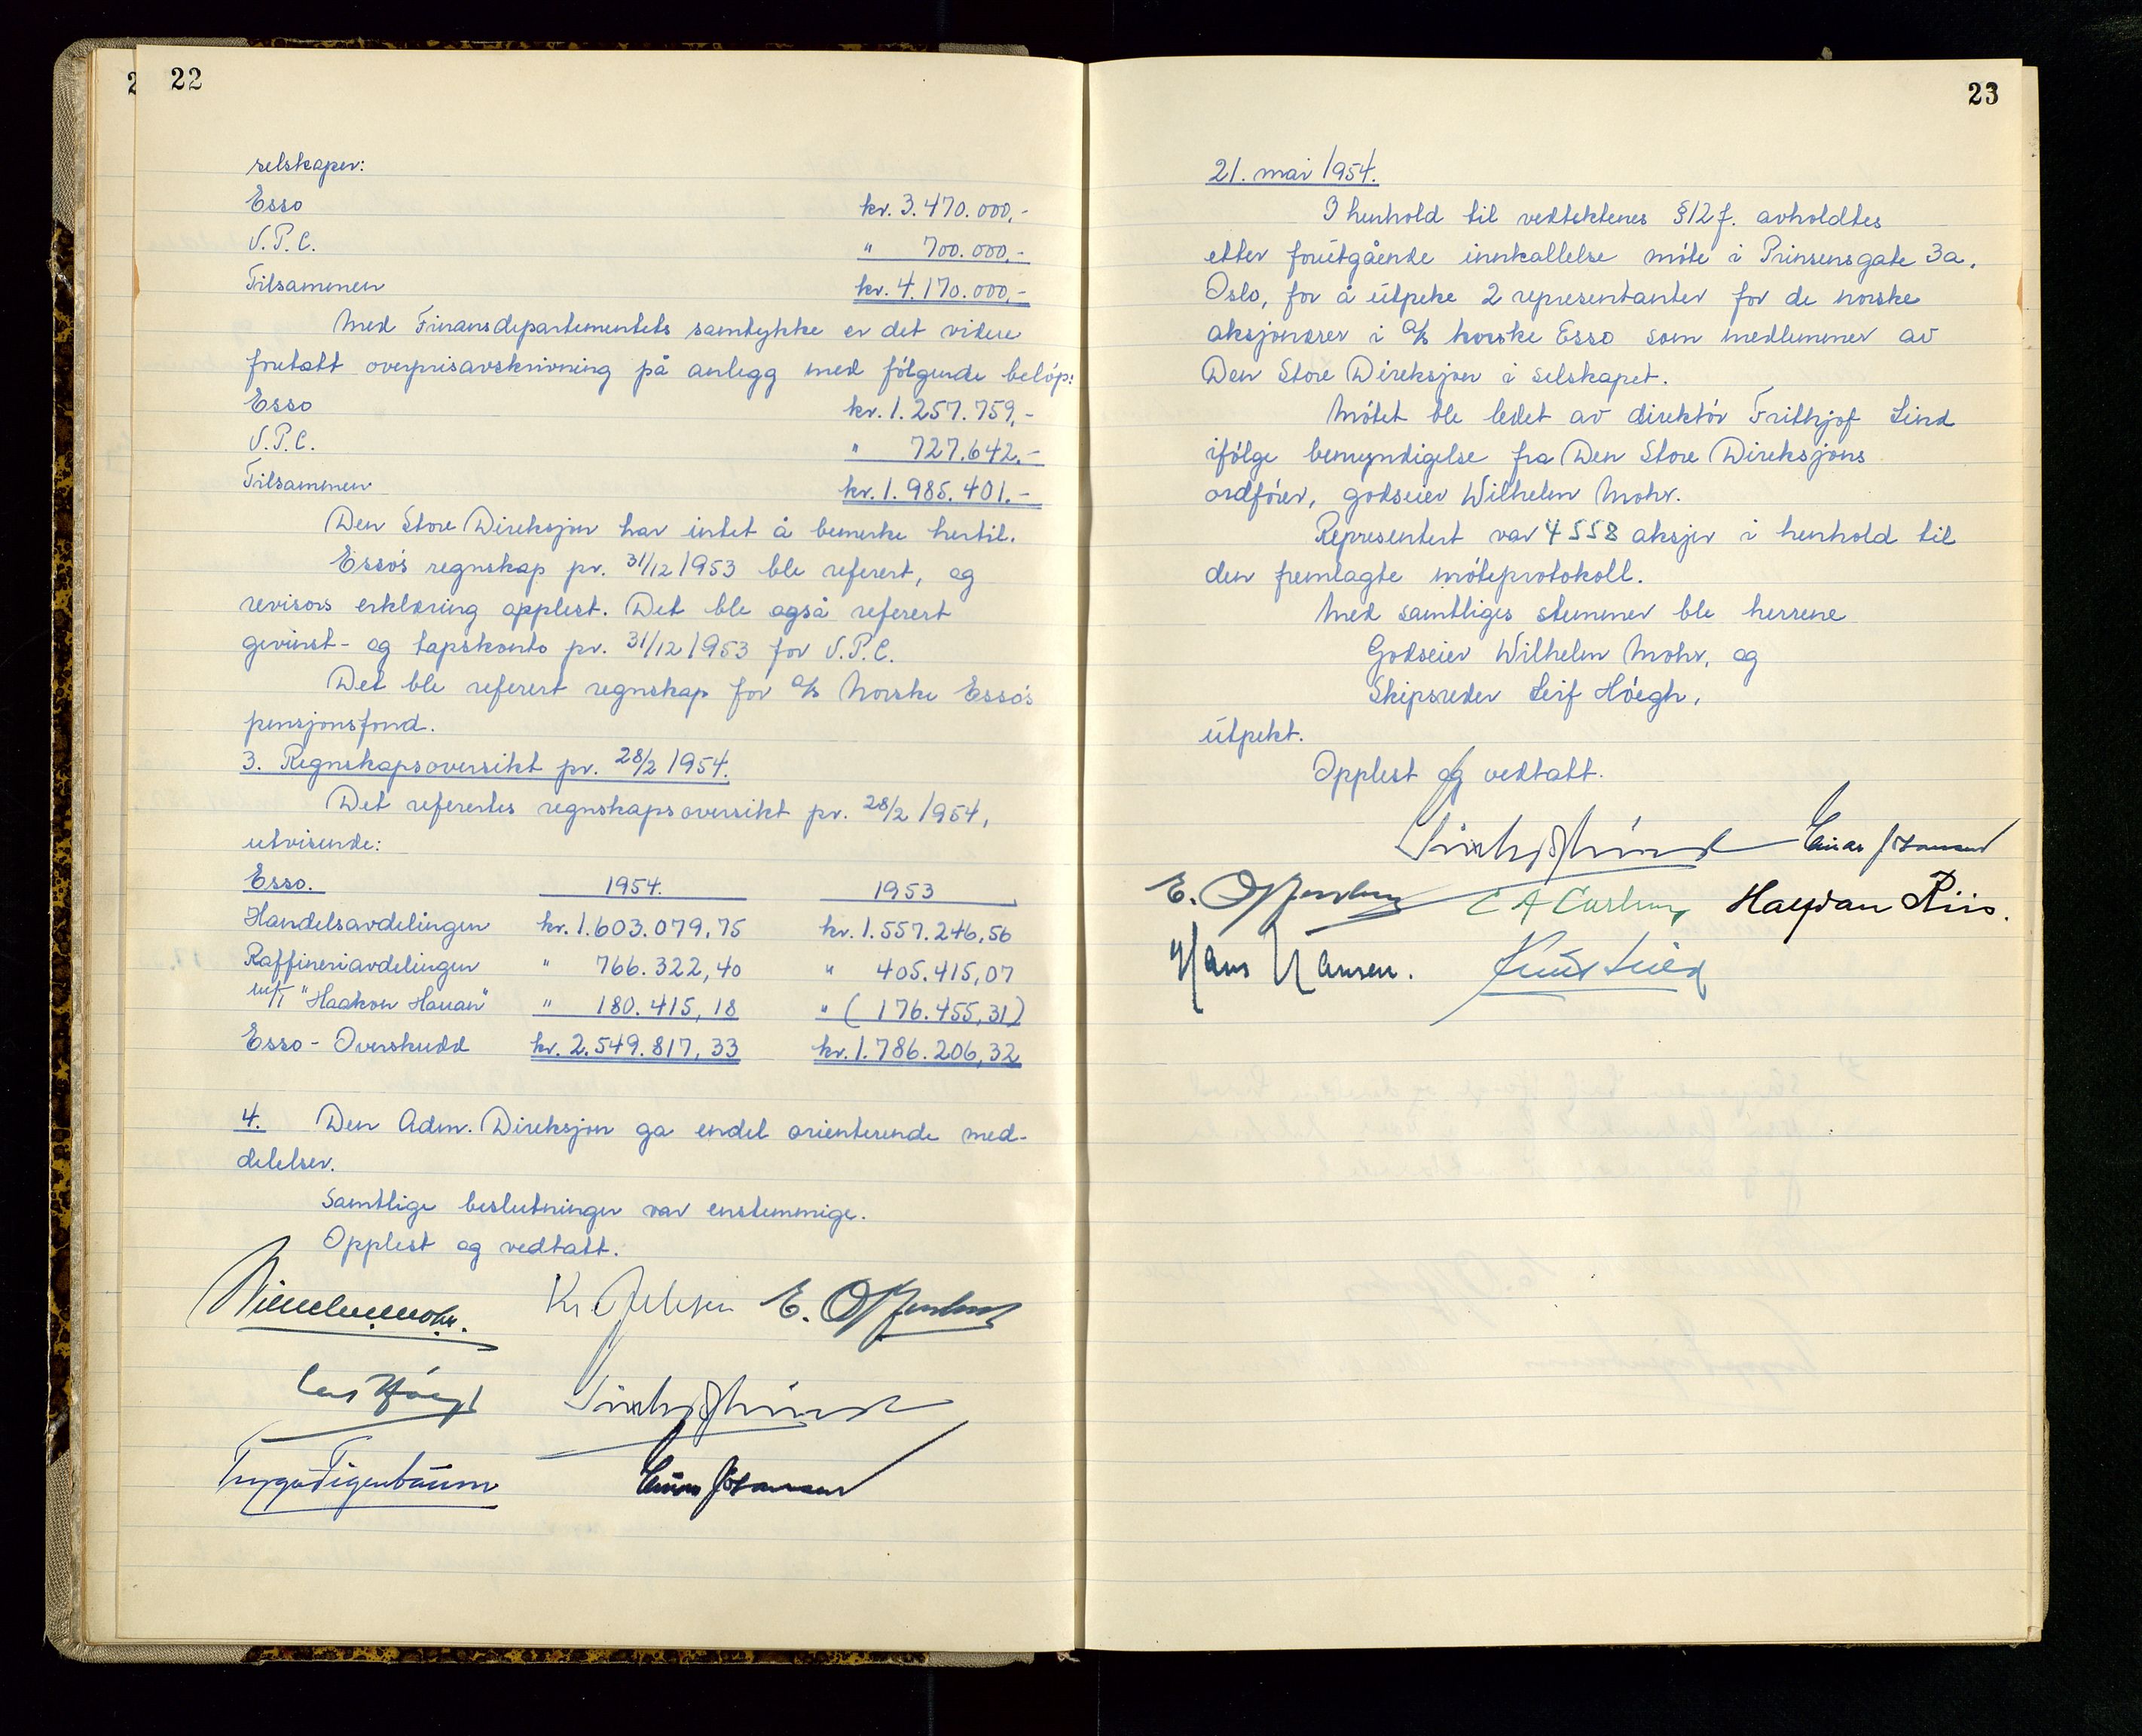 22
selskaper:
Esso kr. 3.470.000,-
V.P.C. " 700.000,-
Tilsammen kr. 4.170.000,-
Med Finansdepartementets samtykke er det videre
foretatt overprisavskrivning på anlegg med følgende beløp:
Esso kr. 1.257.759,-
V.P.C. " 727.642.-
Tilsammen kr. 1.985.401.-
Den Store Direksjon har intet å bemerke hertil.
Esso's regnskap pr. 31/12 1953 ble referert, og
revisors erklæring opplest. Det ble også referert
gevinst- og tapskonto pr. 31/12 1953 for V.P.C.
Det ble referert regnskap for A/S Norske Esso's
pensjonsfond.
3. Regnskapsoversikt pr. 28/2 1954.
Det refertes regnskapsoversikt pr. 28/2 1954,
utvisende:
Esso. 1954. 1953
Handelsavdelingen kr. 1.603.079,75 kr. 1.557.246,56
Raffineriavdelingen " 766.322,40 " 405.415,07
m/T "Haakon Hauan" " 180.415,18 " (176.455,31)
Esso - Overskudd kr. 2.549.817,33 kr. 1.786.206,32
4. Den Adm. Direksjon ga endel orienterende med-
delelser.
Samtlige beslutninger var enstemmige.
Opplest og vedtatt.
Wilhelm Mohr.
Leif Höegh
23
21. mai 1954.
I henhold til vedtektenes §12 f. avholdtes
etter forutgående innkallelse møte i Prinsensgate 3a,
Oslo, for å utpeke 2 representanter for de norske
aksjonærer i A/S Norske Esso som medlemmer av
Den Store Direksjon i selskapet.
Møtet ble ledet av direktør Frithjof Lind
ifølge bemyndigelse fra Den Store Direksjons
ordfører, godseier Wilhelm Mohr.
Representert var 4558 aksjer i henhold til
den fremlagte møteprotokoll.
Med samtliges stemmer ble herrene
Godseier Wilhelm Mohr, og
Skipsreder Leif Höegh,
utpekt.
Opplest og vedtatt.
Halfdan Riis.
Hans Hansen.